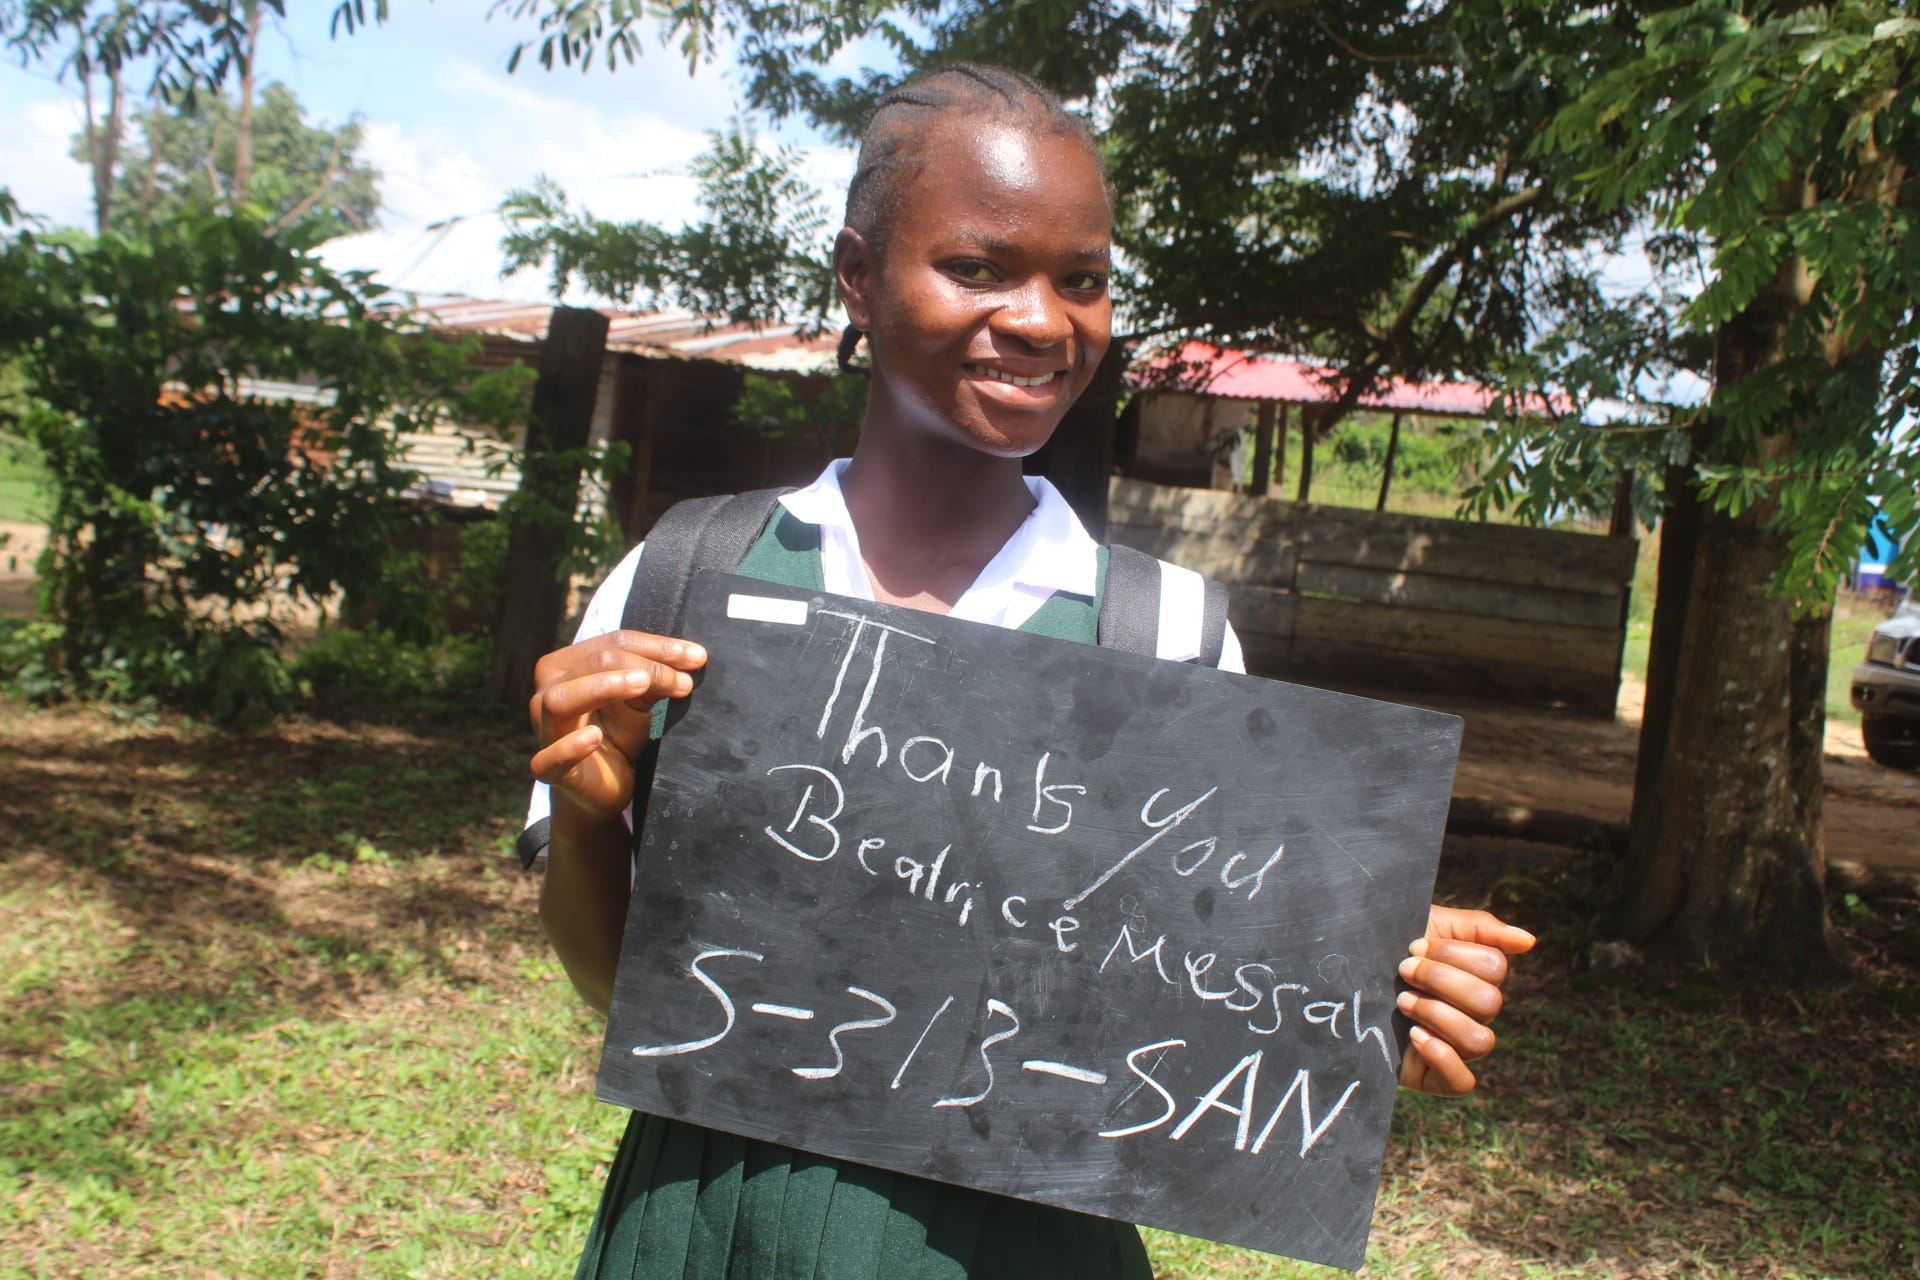 Thanks you
Beatrice Messah
S-313-SAN